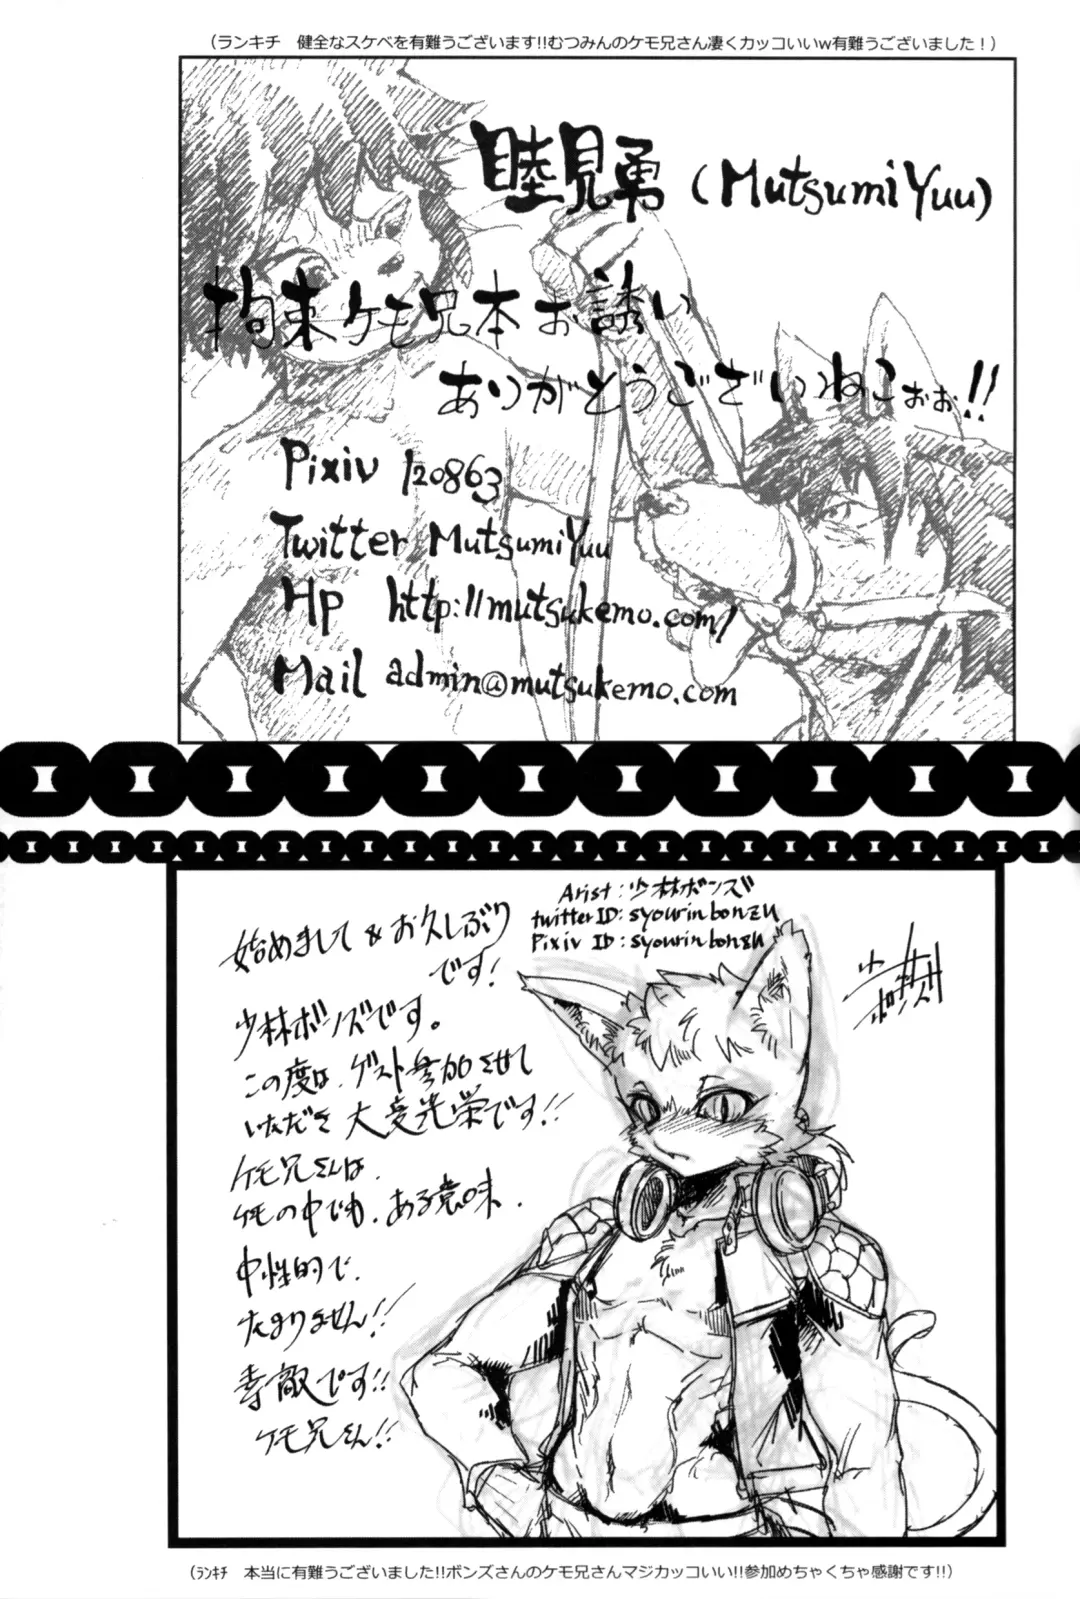 (ランキチ　健全なスケベを有難うございます!!むつみんのケモ兄さん凄くカッコいいw有難うございました！)
睦見勇 (MutsumiYuu)
拘束ケモ兄本お誘い
ありがとうございねこぉぉ!!
Pixiv 120863
Twitter MutsumiYuu
Hp http://mutsukemo.com/
Mail admin@mutsukemo.com
Arist:少林ボンズ
twitter ID:syourinbonzu
Pixiv ID:syourinbonzu
始めまして&お久しぶり
です!
少林ボンズです。
この度は、ゲスト参加させて
いただき大変光栄です!!
ケモ兄さんは、
ケモの中でも、ある意味、
中性的で、
たまりません!!
素敵です!!
ケモ兄さん!!
少林ボンズ
(ﾗﾝｷﾁ　本当に有難うございました!!ボンズさんのケモ兄さんマジカッコいい!!参加めちゃくちゃ感謝です!!)